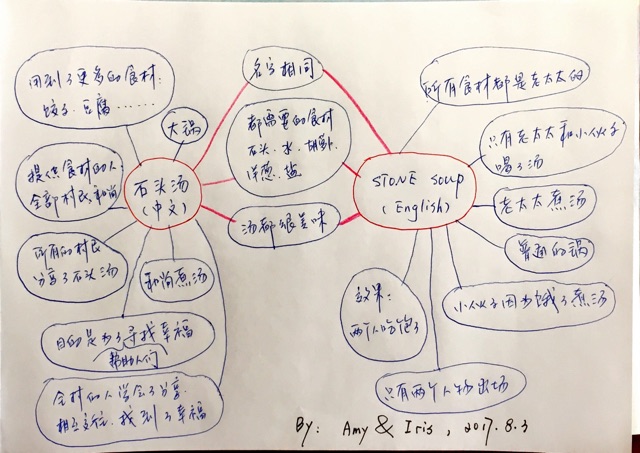 用到了更多的食材:
饺子、豆腐……
大锅
提供食材的人:
全部村民和和尚
石头汤
(中文)
所有的村民
分享了石头汤
和尚煮汤
目的是为了寻找幸福
帮助人们
全村的人学会了分享、
相互交往、找到了幸福
名字相同
都需要的食材
石头、水、胡萝卜
洋葱、盐
汤都很美味
STONE SOUP
(English)
所有食材都是老太太的
只有老太太和小伙子
喝了汤
老太太煮汤
普通的锅
小伙子因为饿了煮汤
效果:
两个人吃饱了
只有两个人物出场
By: Amy & Iris, 2017.8.3